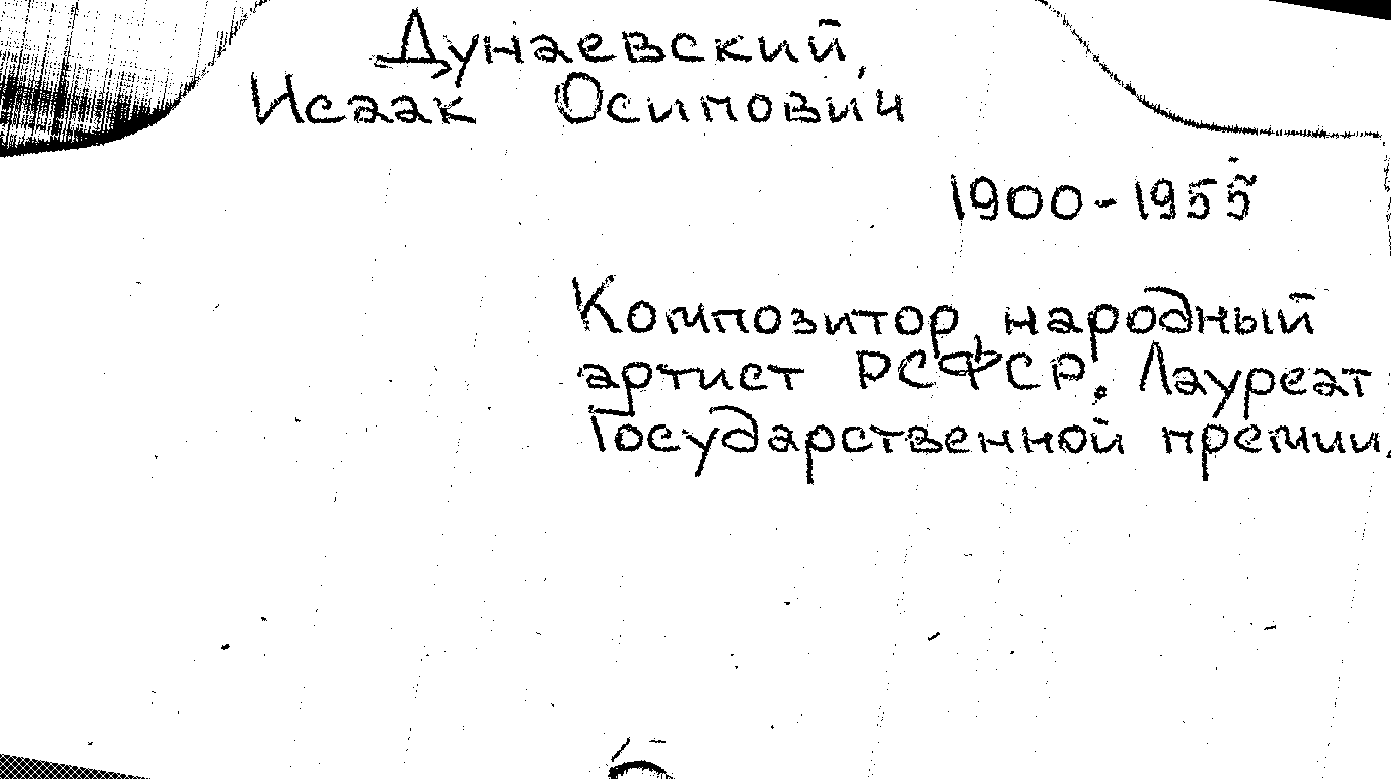 Дунаевский,
Исаак Осипович
1900-1955
Композитор, народный
артист РСФСР. Лауреат
Государственной премии.